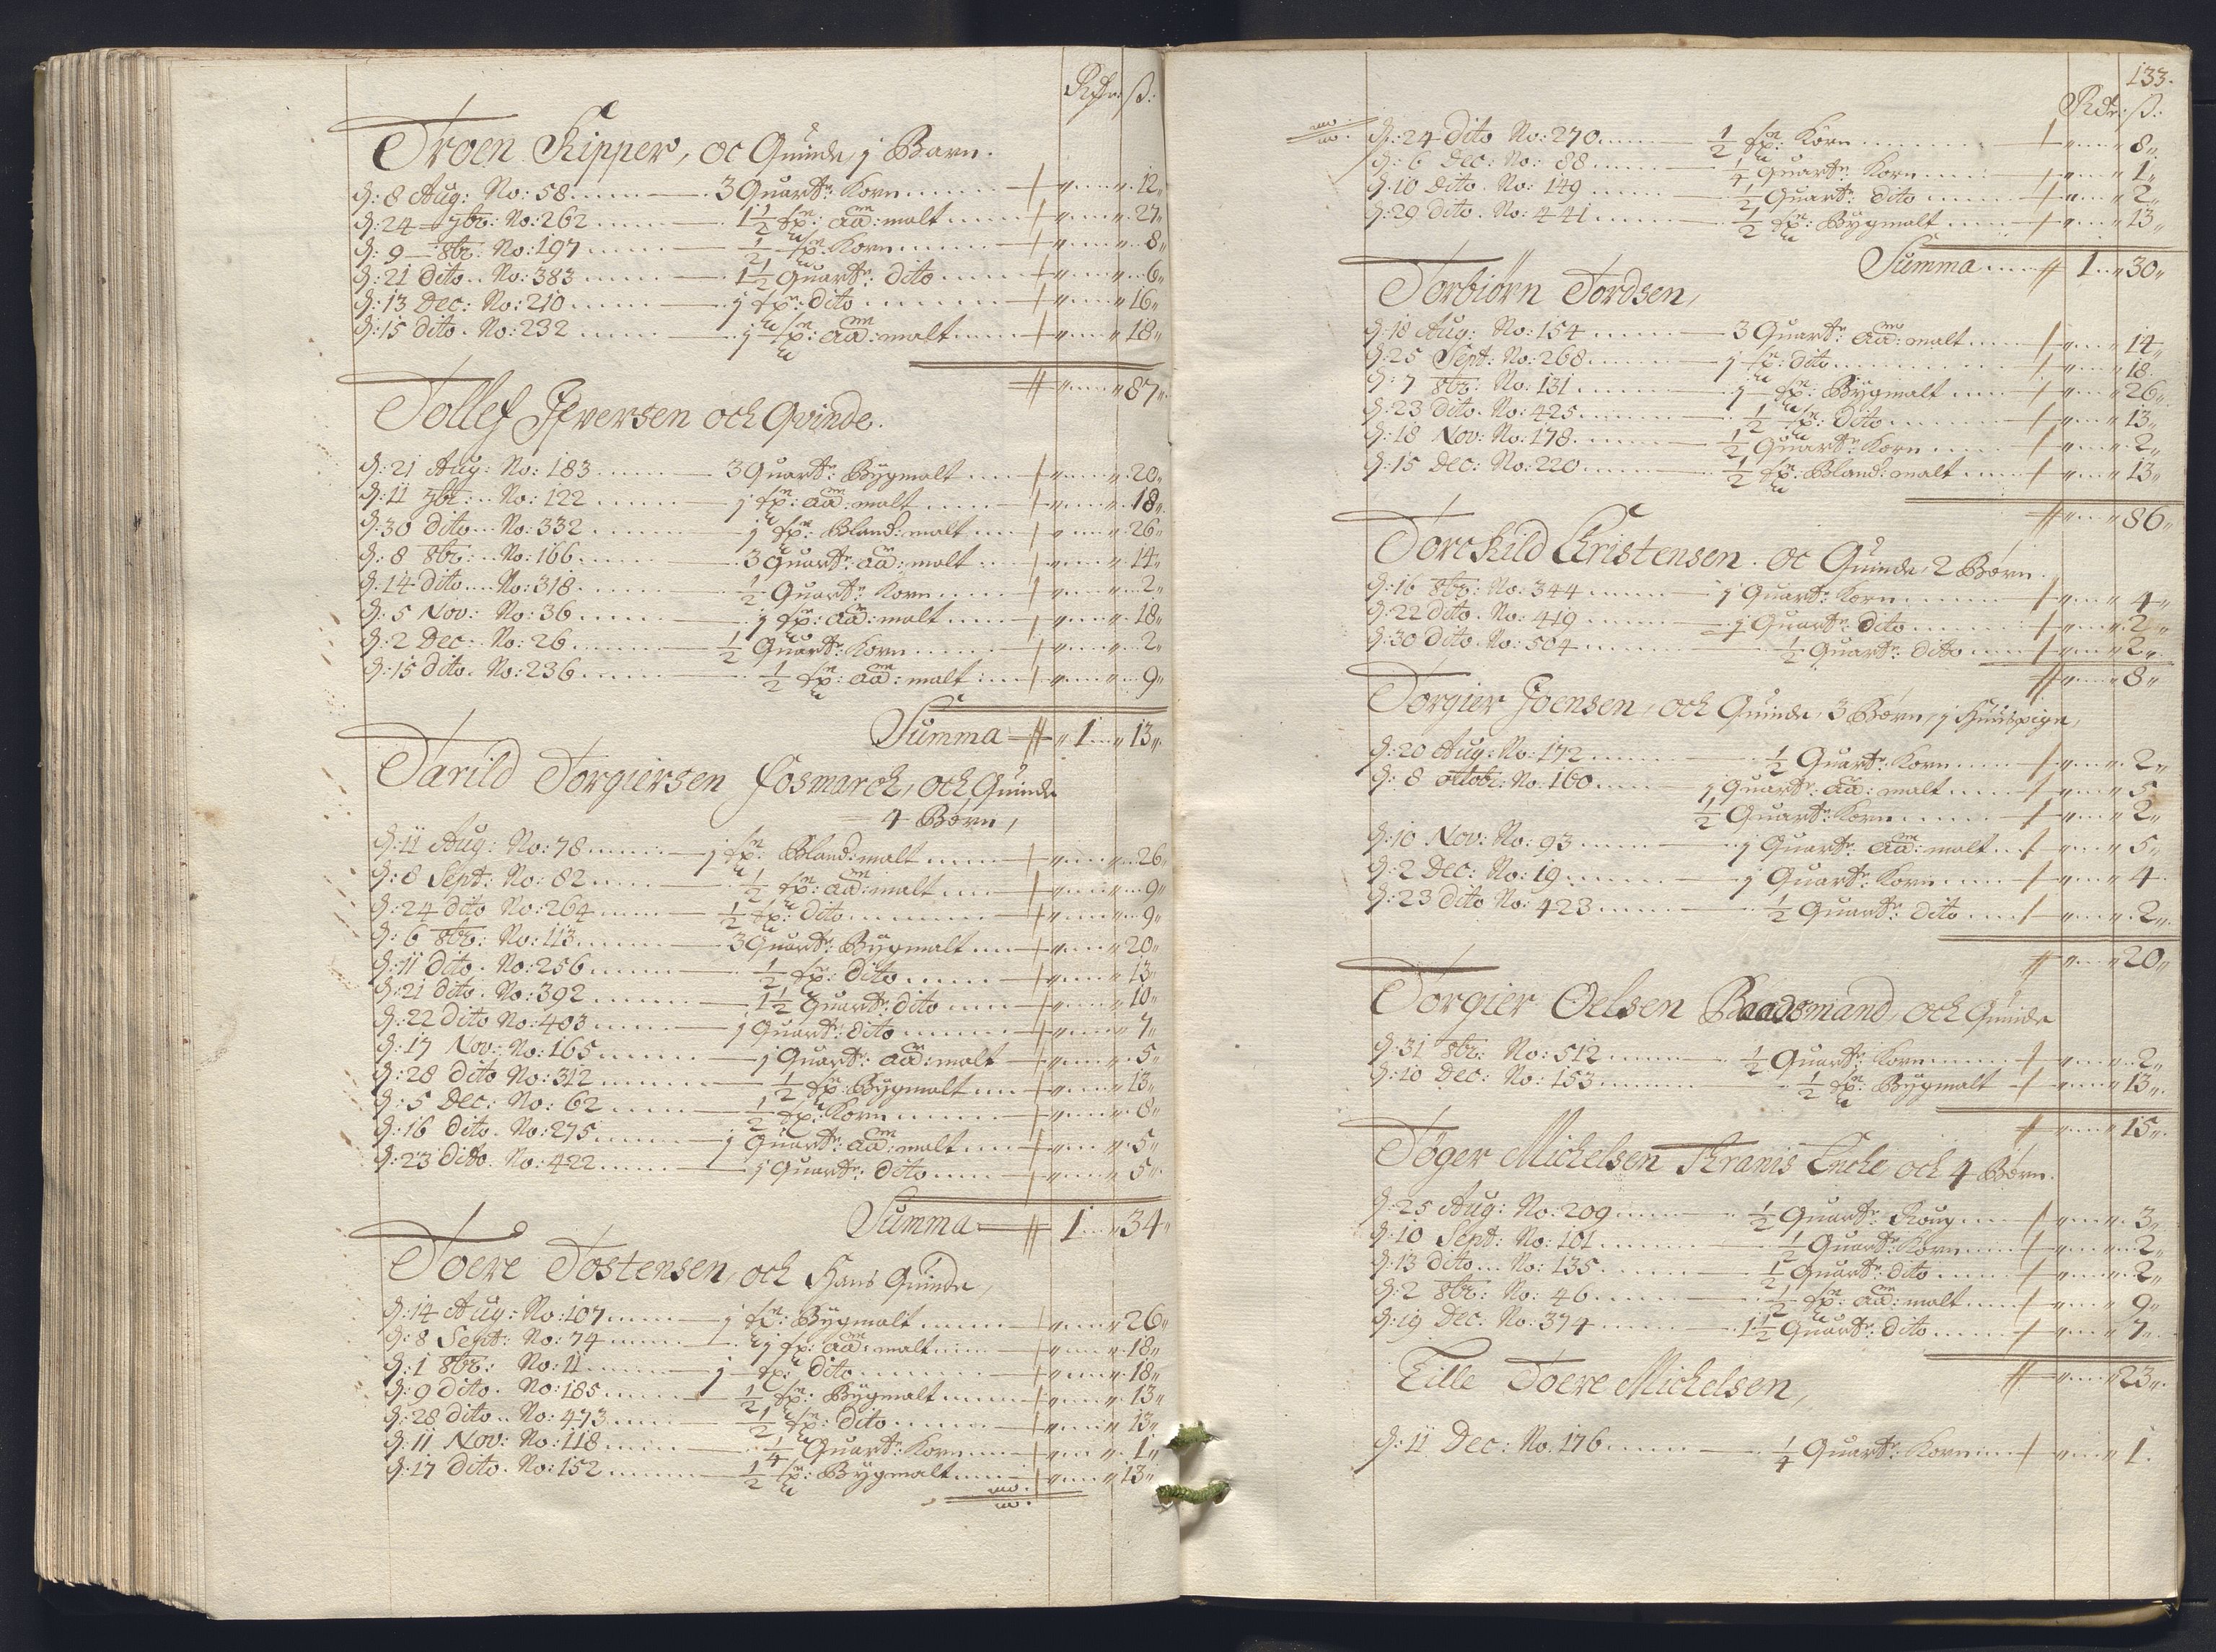 Rdr: ß:
Troen Skipper, oc Quinde, j Barn.
d: 8 Aug: No: 58 3 Quartr: Korn 12
d: 24 7br: No: 262 1½ sp: aad: malt 27
d: 9 8br: No: 197 ½ sp: Korn 8
d: 21 dito. No: 383 1½ Quartr: dito 6
d: 13 Dec: No: 210 j sp: dito 16
d: 15 dito. No: 232 j sp: aad: malt 18
87
Tollef Ifversen och Qvinde.
d: 21 Aug: No: 183 3 Quartr: Bÿgmalt 20
d: 11 7br: No: 122 j sp: aad: malt 18
d: 30 dito No: 332 j sp: Bland: malt 26
d: 8 8br: No: 166 3 Quartr: aad: malt 14
d: 14 dito No: 318 ½ Quartr: Korn 2
d: 5 Nov: No: 36 j sp: aad: malt 18
d: 2 Dec: No: 26 ½ Quartr: Korn 2
d: 15 dito. No: 236 ½ sp: aad: malt 9
Summa 1 13
Tarild Torgiersen Fosmarch, och Quinde
4 Børn,
d: 11 Aug: No: 78 j sp: Bland: malt 26
d: 8 Sept: No: 82 ½ sp: aad: malt 9
d: 24 dito No: 264 ½ sp: dito 9
d: 6 8br: No: 113 3 Quartr: Bÿgmalt 20
d: 11 dito. No: 256 ½ sp: dito 13
d: 21 dito. No: 392 1½ Quartr: dito 10
d: 22 dito No: 403 j Quartr: dito 7
d: 17 Nov: No: 165 j Quartr: aad: malt 5
d: 28 dito No: 312 ½ sp: Bÿgmalt 13
d: 5 Dec: No: 62 ½ sp: Korn 8
d: 16 dito. No: 275 j Quartr: aad: malt 5
d: 23 dito. No: 422 j Quartr: dito 5
Summa 1 34
Toere Tostensen, och Hans Quinde,
d: 14 Aug: No: 107 j sp: Bÿgmalt 26
d: 8 Sept: No: 74 j sp: aad: malt 18
d: 1 8br: No: 11 j sp: dito 18
d: 9 dito. No: 185 ½ sp: Bÿgmalt 13
d: 28 dito. No: 473 ½ sp: dito 13
d: 11 Nov: No: 118 ¼ Quartr: Korn 1
d: 17 dito. No: 152 ½ sp: Bÿgmalt 13
133.
Rdr: ß:
d: 24 dito No: 270 ½ sp: Korn 8
d: 6 Dec: No: 88 ¼ Quartr: Korn 1
d: 10 dito. No: 149 ½ Quartr: dito 2
d: 29 dito. No: 441 ½ sp: Bÿgmalt 13
Summa 1 30
Torbiørn Tordsen,
d: 18 Aug: No: 154 3 Quartr: aad: malt 14
d: 25 Sept: No: 268 j sp: dito 18
d: 7 8br: No: 131 j sp: Bÿgmalt 26
d: 23 dito. No: 425 ½ sp: dito 13
d: 18 Nov: No: 178 ½ Quartr: Korn 2
d: 15 Dec: No: 220 ½ sp: Bland: malt 13
86
Torckild Christensen. oc Quinde, 2 Børn.
d: 16 8br: No: 344 j Quartr: Korn 4
d: 22 dito. No: 419 ½ Quartr: dito 2
d: 30 dito. No: 504 ½ Quartr: dito 2
8
Torgier Joensen, och Quinde, 3 Børn, j Huuspige,
d: 20 Aug: No: 172 ½ Quartr: Korn 2
d: 8 octobr: No: 160 j Quartr: aad: malt 5
½ Quartr: Korn 2
d: 10 Nov: No: 93 j Quartr: aad: malt 5
d: 2 Dec: No: 19 j Quartr: Korn 4
d: 23 dito No: 423 ½ Quartr: dito 2
20
Torgier Oelsen Baadsmand, och Quinde
d: 31 8br: No: 512 ½ Quartr: Korn 2
d: 10 Dec: No: 153 ½ sp: Bÿgmalt 13
15
Tøger Michelsen Kranis Encke, och 4 Børn.
d: 25 Aug: No: 209 ½ Quartr: Roug 3
d: 10 Sept: No: 101 ½ Quartr: Korn 2
d: 13 dito No: 135 ½ Quartr: dito 2
d: 2 8br: No: 46 ½ sp: aad: malt 9
d: 19 Dec: No: 374 1½ Quartr: dito 7
23
Lille Toere Michelsen,
d: 11 Dec: No: 176 ¼ Quartr: Korn 1